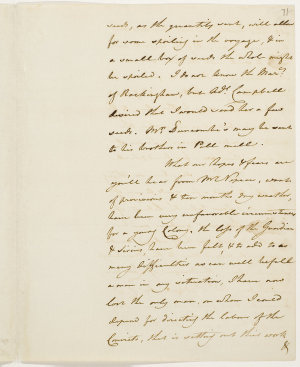 71
seeds, as the quantity sent, will allow
for some spoiling in the voyage, & in
a small box of seeds the whole might
be spoiled. I do not know the Mar.s
of Rockingham, but Lady Campbell
desired that I would send her a few
seeds. Mr. Duncombe's may be sent
to his brother in Pall mall.
What our hopes & fears are
you'll hear from Mr. Nepean, want
of provisions & two months dry weather,
have been very unfavorable circumstances
for a young Colony, the loss of the Guardian
& Sirius, have been felt, & to add to as
many difficulties as can well befall
a man in any situation, I have now
lost the only man, on whom I could
depend for directing the labour of the
Convicts, that is setting out their work
&